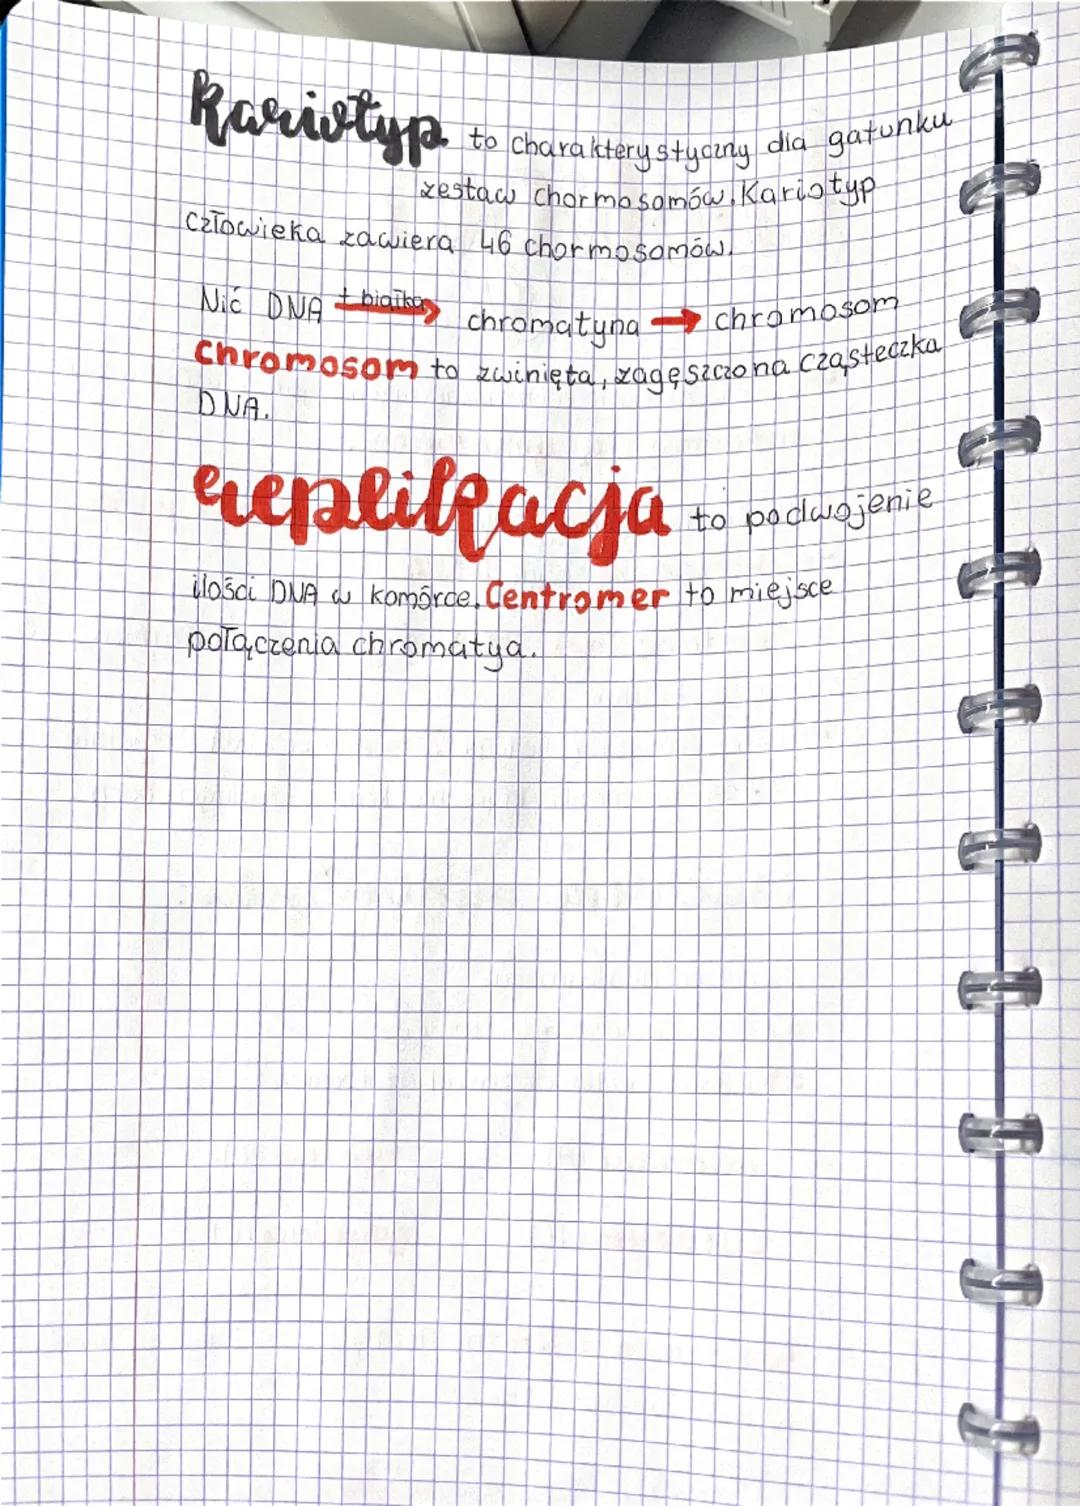 Kariotyp to charakterystyczny dla gatunku
zestaw chormosomów. Kariotyp
człowieka zawiera 46 chormosomów.
Nić DNA + białka → chromatyna → chromosom
chromosom to zwinięta, zagęszczona cząsteczka
DNA.
replikacja to podwojenie
ilości DNA w komórce. Centromer to miejsce
połączenia chromatya.